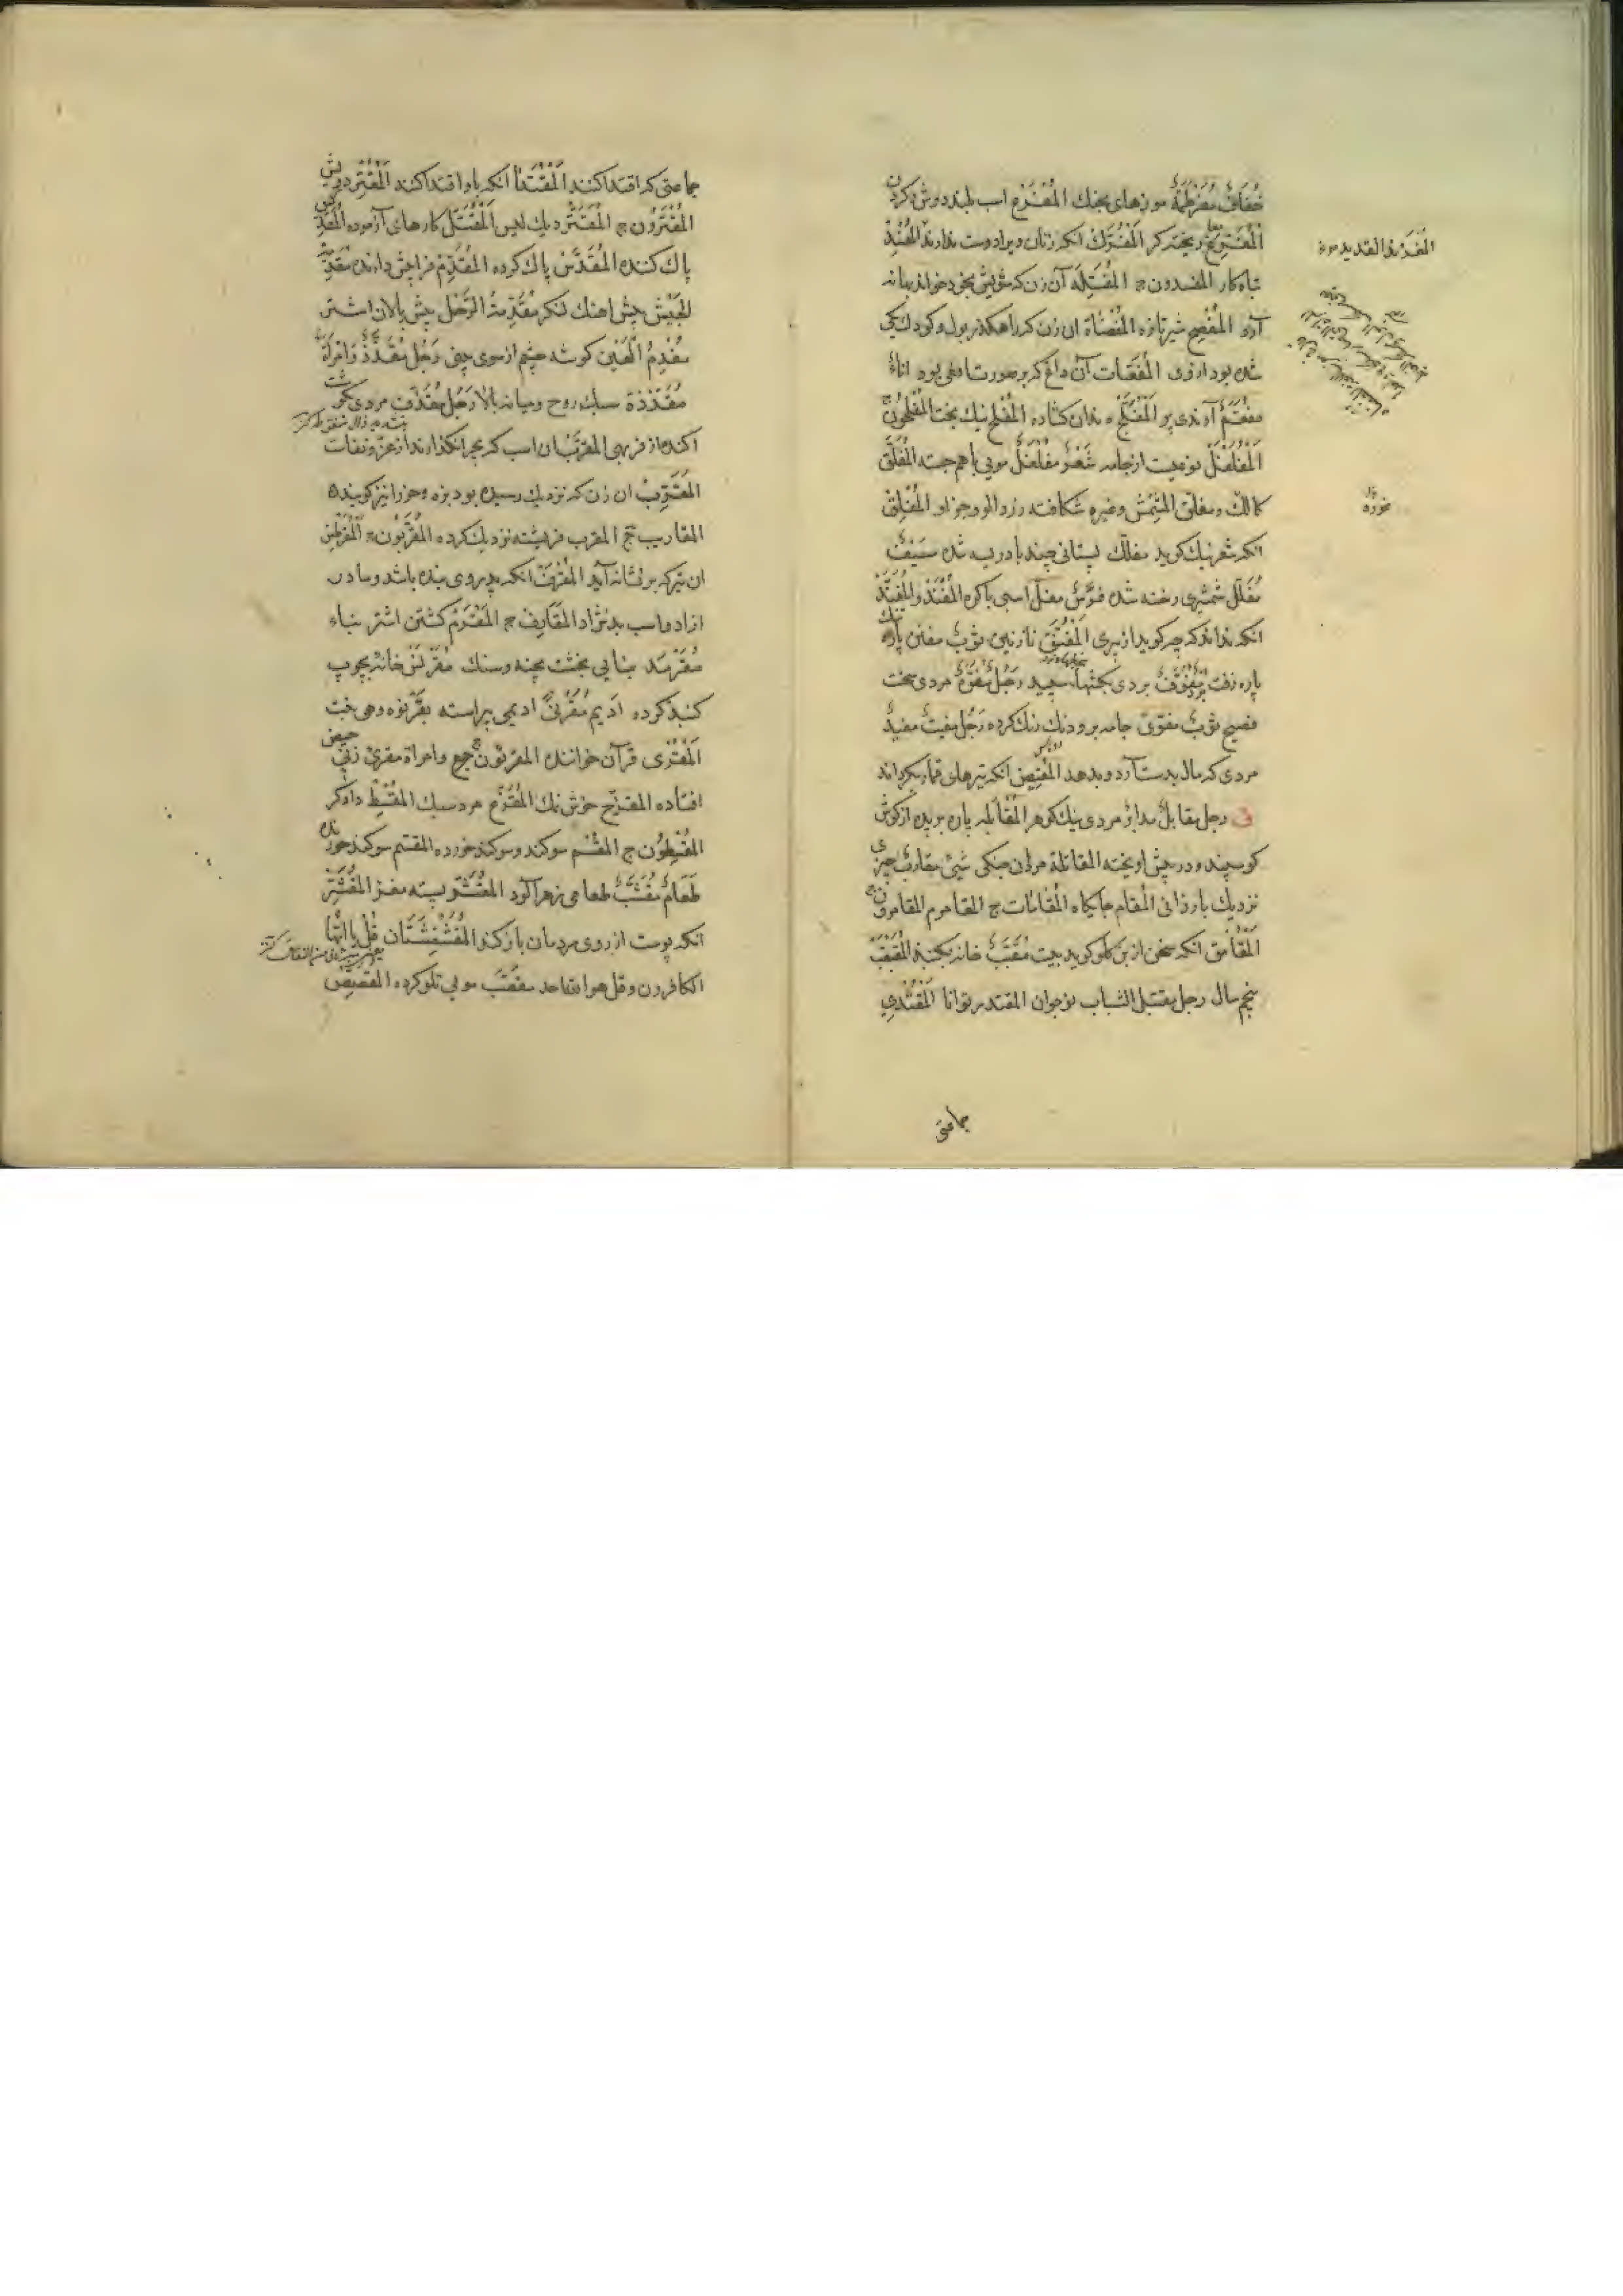 خُفَافٌ مُفَرْطَمَةٌ موزهای بجنک المُفْرَم اسب بلند دوش وکردن
المُفْتَرِغ ریخته کر المُفَرَّكْ انکه زنان ویرا دوست ندارند المُفْسِد
تباه کار المفسدون ج المُفَسِّلَه آن زن که شویش بخود خواند بهانه
آرد المُفْصِح شیر تازه المُفْضَاة ان زن که راهکذر بول وکودك یکی
شده بود ازوی المُفَعّات آن داغ که بر صورت افعی بود اناءٌ
مفْعَمٌ آوندی پر المُفَلَّج دندان کشاده المُفْلِح نیك بخت المُفْلِحُونَ ج
المُفَلْفَلْ نوعیست از جامه شَعْرٌ مفَلْفَلٌ مویی باهم جسته المُفَلَّق
کالك ومفلّق المِشْمِش وغیره شکافته زردالو وجز او المُفْلِق
انکه شعر نیك کوید مفلّك پستانی چند بادریسه شده سَیْفٌ
مُفَلَّل شمشیری رخنه شده فَرَسٌ مفلّ اسبی باکره المُفْنِد والمُفَنَّد
انکه نداند که چه کوید از پیری المُفَنَّق نازنین ثوبٌ مفنن پاره
پاره زفت بُرْدٌ مُفَوَّفٌ بردی بکجنهاء سپید رَجُلٌ مُفَوَّهٌ مردی سخت
فصیح ثوبٌ مفوّیٌ جامه بروذنك رنك کرده رَجُلٌ مفیتٌ مفیدٌ
مردی که مال بدست آرد وبدهد المُفِیض انکه تیرهای قمار بکرداند
ق رجل مقابلٌ مدابرٌ مردی نیك کوهر المُقَابَله پاره بریده از کوش
کوسپند ودر پیش اویخته المقاتلة مردان جنکی شیئٌ مقاربٌ چیزی
نزدیك بارزانی المقام جایکاه المُقامات ج المقامر المقامرون ج
المُقَامِق انکه سخن از بن کلو کوید بیت مُقَبَّبٌ خانه بکنبذ المُقَبْقِب
پنجم سال رجل مقتبل الشباب نوجوان المقتدر توانا المُقْتَدِي
جماعتی
المُفَرِّند القدید مرد
غوزه
جماعتی که اقتدا کنند المُقْتَدَا انکه باو اقتدا کنند المُقْتِر درویش
المُقْتِرُون ج المُقْتَرّ دیك لیس المُقَتَّل کارهای آزموده المُقَدِّس
پاك کننده المُقَدَّس پاك کرده المُقَدِّم فراپیش دارنده مُقَدِّمَة
الجَیْش پیش اهنك لشکر مُقَدِّمةُ الرَّحْل پیش پالان اشتر
مقْدِمُ العَین کوشه چشم از سوی بینی رَجُل مُقَذَّذٌ وَامْرَأةٌ
مُقَذَّذة سبك روح ومیانه بالا رَجُل مقَذَّف مردی بکوشت
اکنده از فربهی المقربات ان اسب که بچرا نکذارند از عزّ ونفاست
المُقْرِبْ ان زن که نزدیك رسیده بود بزه وخر را نیز کویند
المقاریب ج المقرب فریشته نزدیك کرده المُقَرَّبُون ج المُقَرْطِس
ان تیر که بر نشانه آید المُقْرِفْ انکه پدر وی بنده باشد ومادر
ازاد واسب بدنژاد المقَارِف ج المُقْرَم کشتن اشتر بناء
مُقَرْمَد بنایی بخشت پخته وسنك مُقَرْنَسْ خانه بچوب
کنبذ کرده ادیم مُقَرْنًی ادیمی پیراسته بقَرْنُوَه وهی نبت
المُقْرِی قرآن خواننده المقرئون جمع وامراة مقرئ زنی حیض
افتاده المقزح خوش نك المُقَزَّع مرد سبك المُقْسِطْ دادکر
المُقْسِطُون ج المقْسَم سوکند وسوکند خورده المقسم سوکند خورنده
طَعَامٌ مُقَشَّبٌ طعامی زهرآلود المُقَشَّر بسته مغز المُقَشِّر
انکه پوست از روی مردمان بازکند المُقَشْقِشَتَان قُل یا ایُّها
الکافرون وقل هو الله احد مقصَّب مویی تلو کرده المقصص